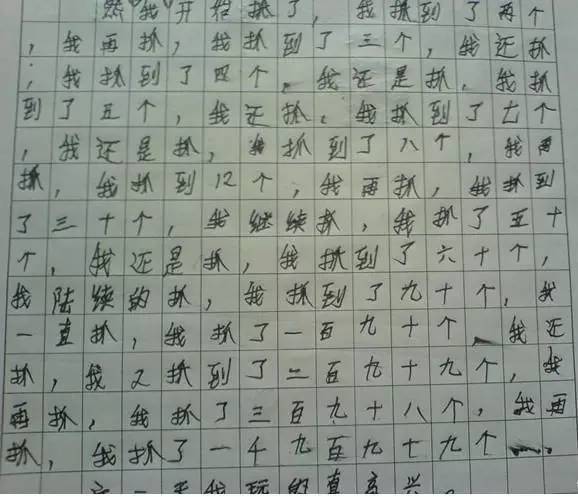 然我开始抓了，我抓到了两个
，我再抓，我抓到了三个，我还抓
，我抓到了四个，我还是抓，我抓
到了五个，我还抓，我抓到了七个
，我还是抓，我抓到了八个，我再
抓，我抓到12个，我再抓，我抓到
了三十个，我继续抓，我抓了五十
个，我还是抓，我抓到了六十个，
我陆续的抓，我抓到了九十个，我
一直抓，我抓了一百九十个，我还
抓，我又抓到了二百九十九个，我
再抓，我抓了三百九十八个，我再
抓，我抓了一千九百九十九个。
这一天我玩的真高兴。